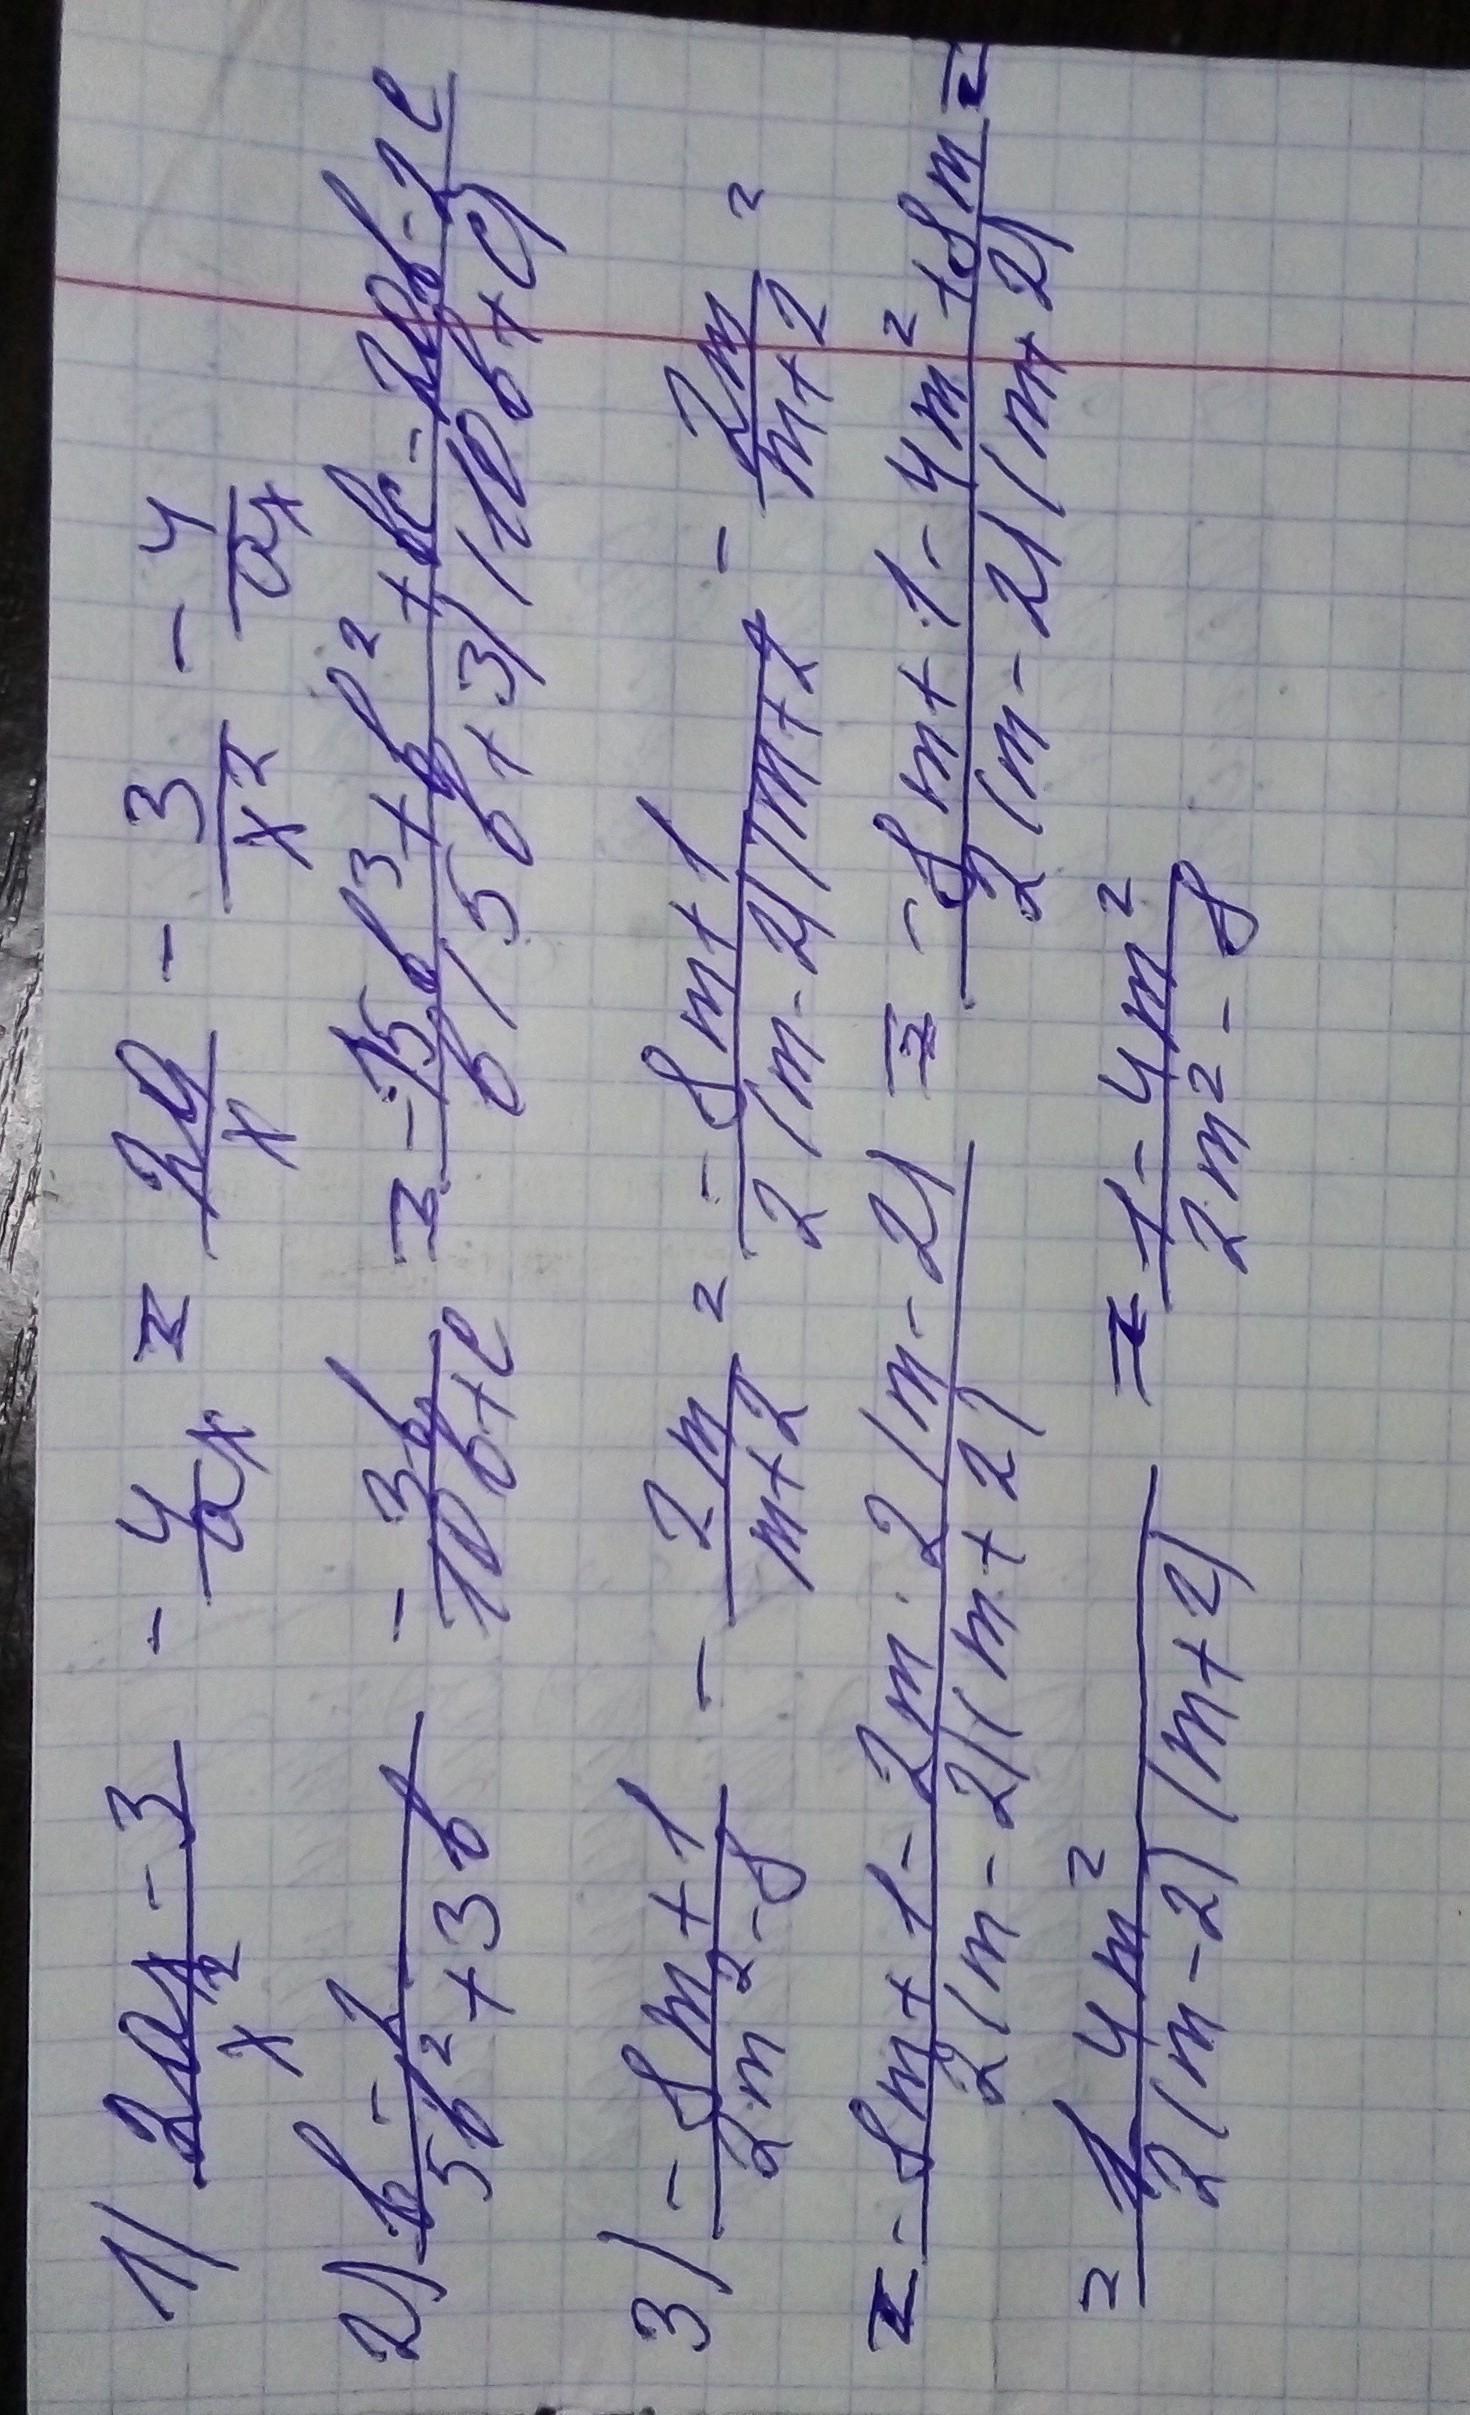 1) (2ax - 3)/x² - 4/ax = 2a/x - 3/x² - 4/ax
2) (2b - 1)/(5b² + 3b) - 3b/(10b + c) = (-15b³ + b² + bc - 2b - 2c)/(b(5b + 3)(10b + c))
3) (-8m + 1)/(2m² - 8) - 2m/(m + 2) = (-8m + 1)/(2(m - 2)(m + 2) - 2m/(m + 2) =
= (-8m + 1 - 2m · 2(m - 2))/(2(m - 2)(m + 2)) = (-8m + 1 - 4m² + 8m)/(2(m - 2)(m + 2)) =
= (1 - 4m²)/(2(m - 2)(m + 2)) = (1 - 4m²)/(2m² - 8)